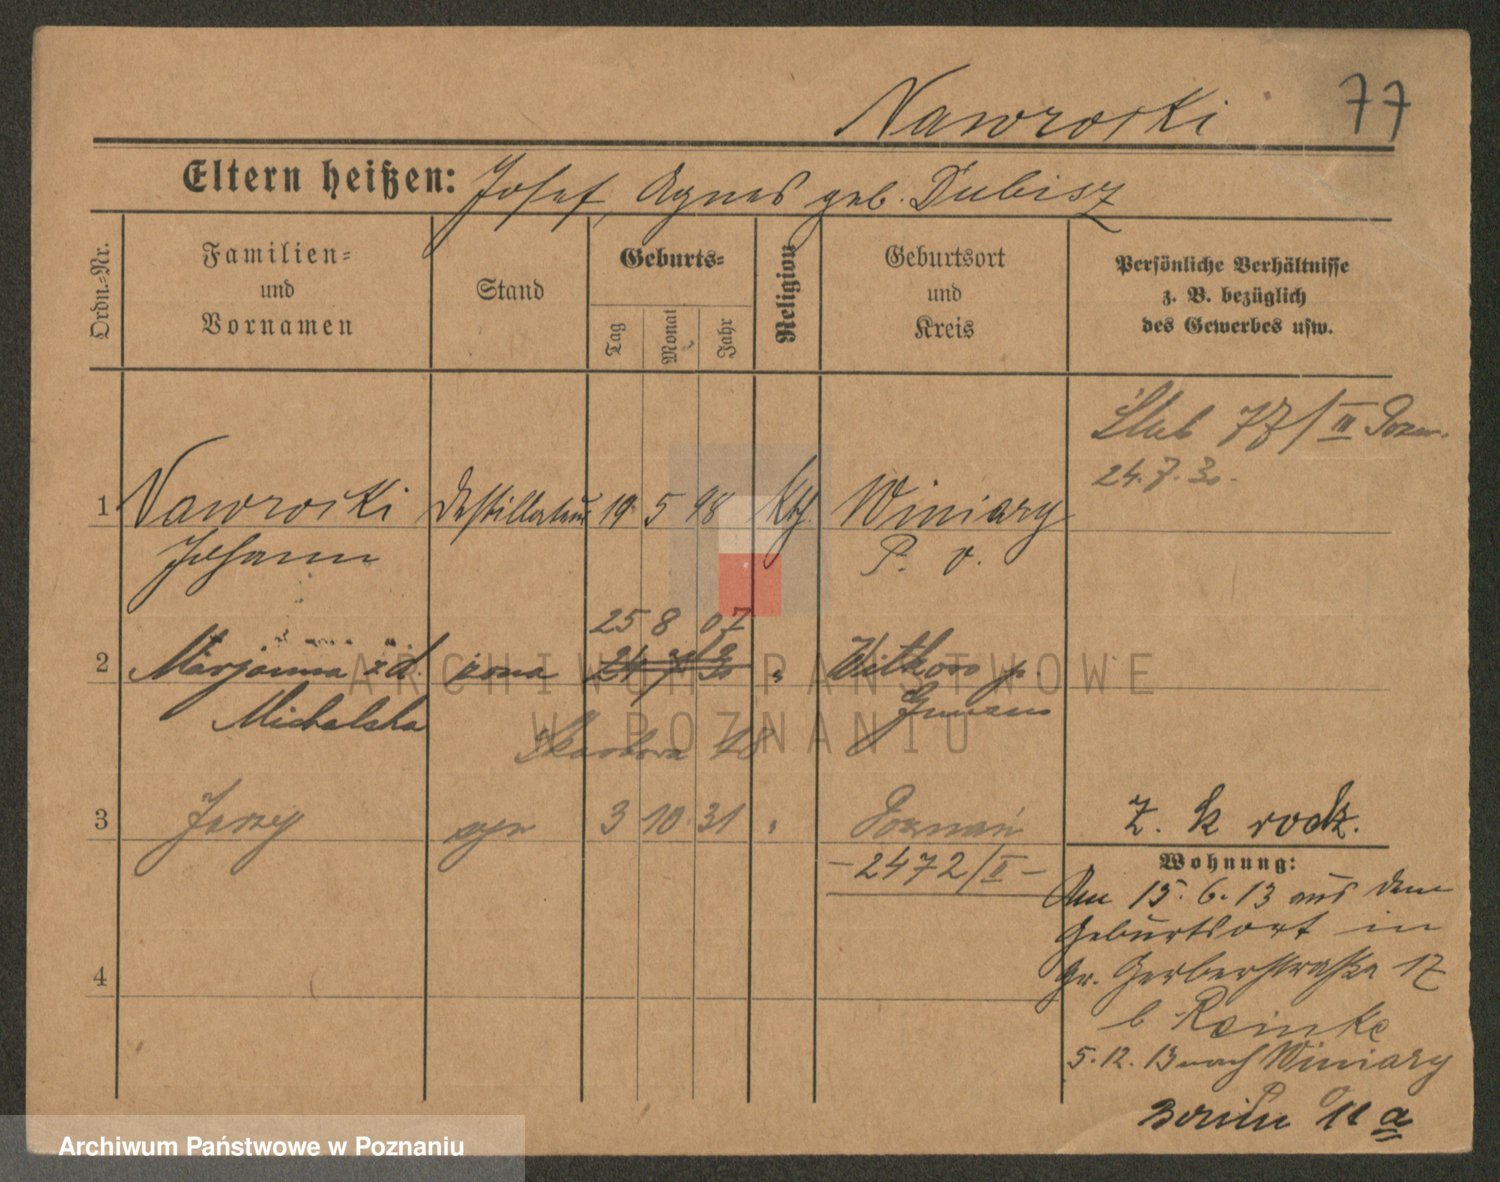 Nawrocki 77
Eltern heißen: Josef, Agnes geb. Dubisz
Ordn.-Nr.
Familien- und Vornamen
Stand
Geburts-
Tag
Monat
Jahr
Religion
Geburtsort und Kreis
Persönliche Verhältnisse
z. B. bezüglich
des Gewerbes usw.
Ślub 77/III Pozn.
24.7.30.
1 Nawrocki Destillateur 19 5 98 Kth. Winiary
Johann P. O.
25 8 07
2 Marjanna z d. żona 24 7 30 " Witkowo p.
Michalska
18
3 Jerzy syn 3 10 31 " Poznań
Z. k rodz.
-2472/II-
Wohnung:
Am 15.6.13 aus dem
Geburtsort in
Gr. Gerberstraße 17
b Reinke
5.12.13 nach Winiary
11 a
4
ARCHIWUM PAŃSTWOWE
W POZNANIU
Archiwum Państwowe w Poznaniu